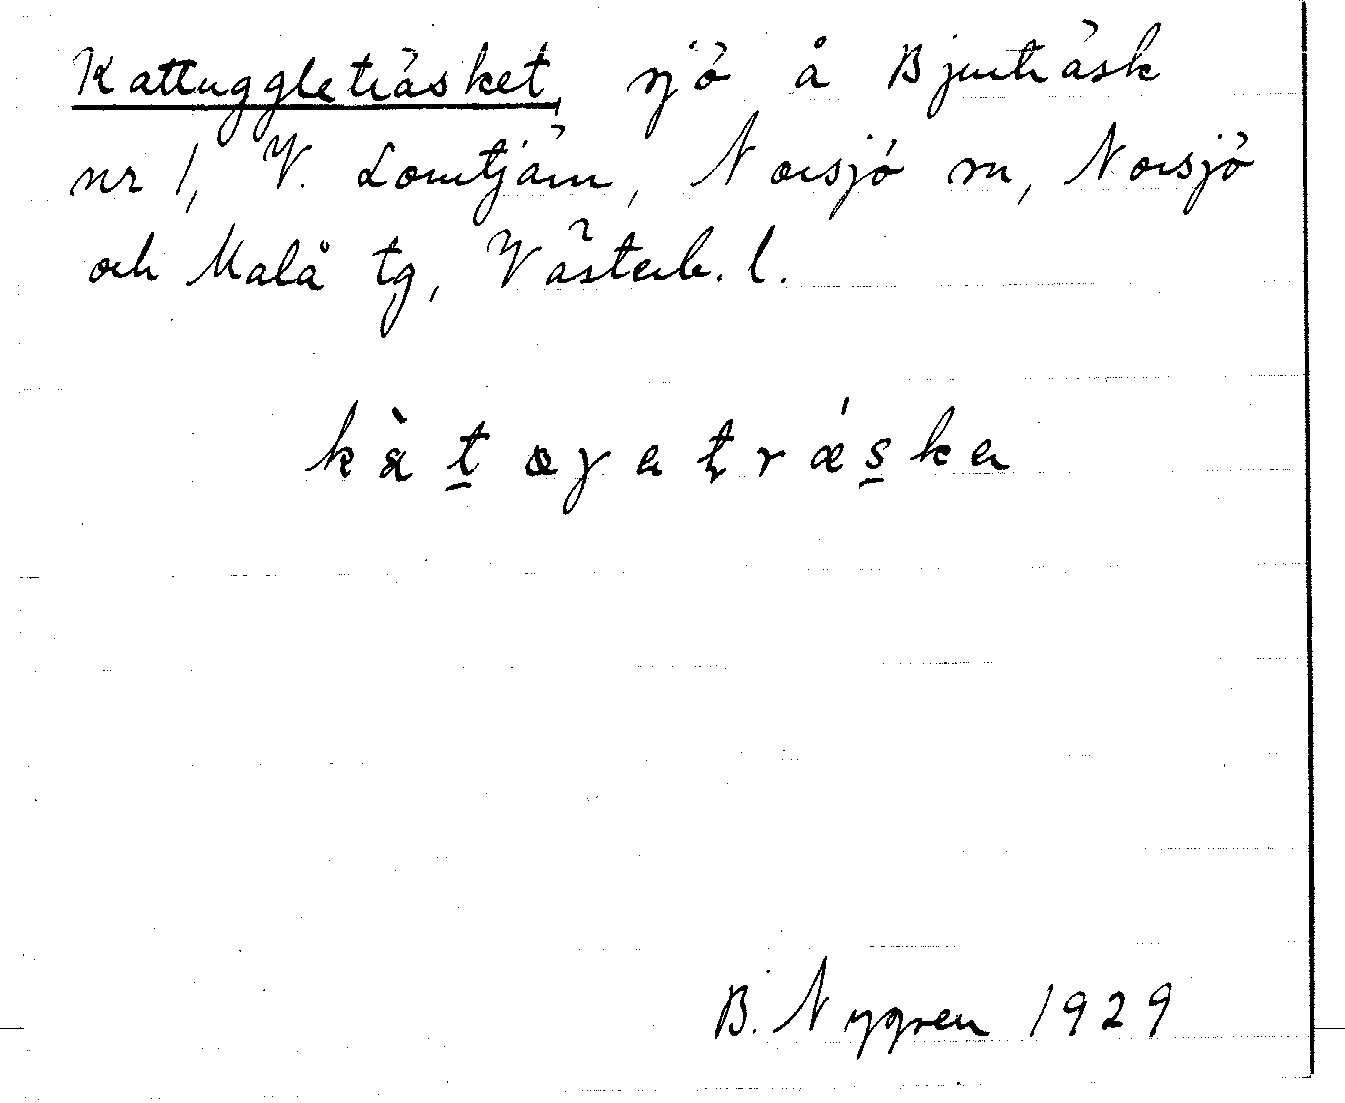 Kattuggleträsket, sjö å Bjurträsk
nr 1, V. Lomtjärn, Norsjö sn, Norsjö
och Malå tg, Västerb. l.
kàt̲ɷγatrǽs̲ka
B. Nygren 1929